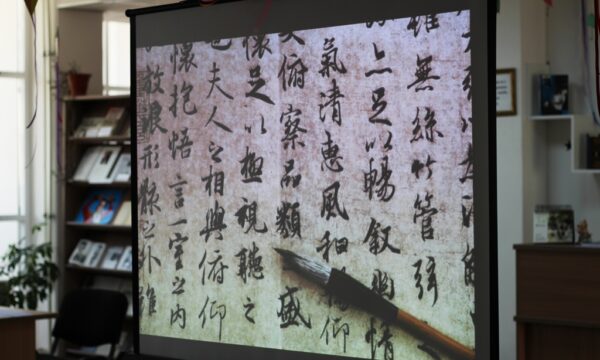 雖無絲竹管弦
亦足以暢叙幽情
氣清惠風和暢仰
俯察品類盛
懷足以極視聽之
也夫人之相與俯仰
懷抱悟言一室之內
放浪形骸之外雖